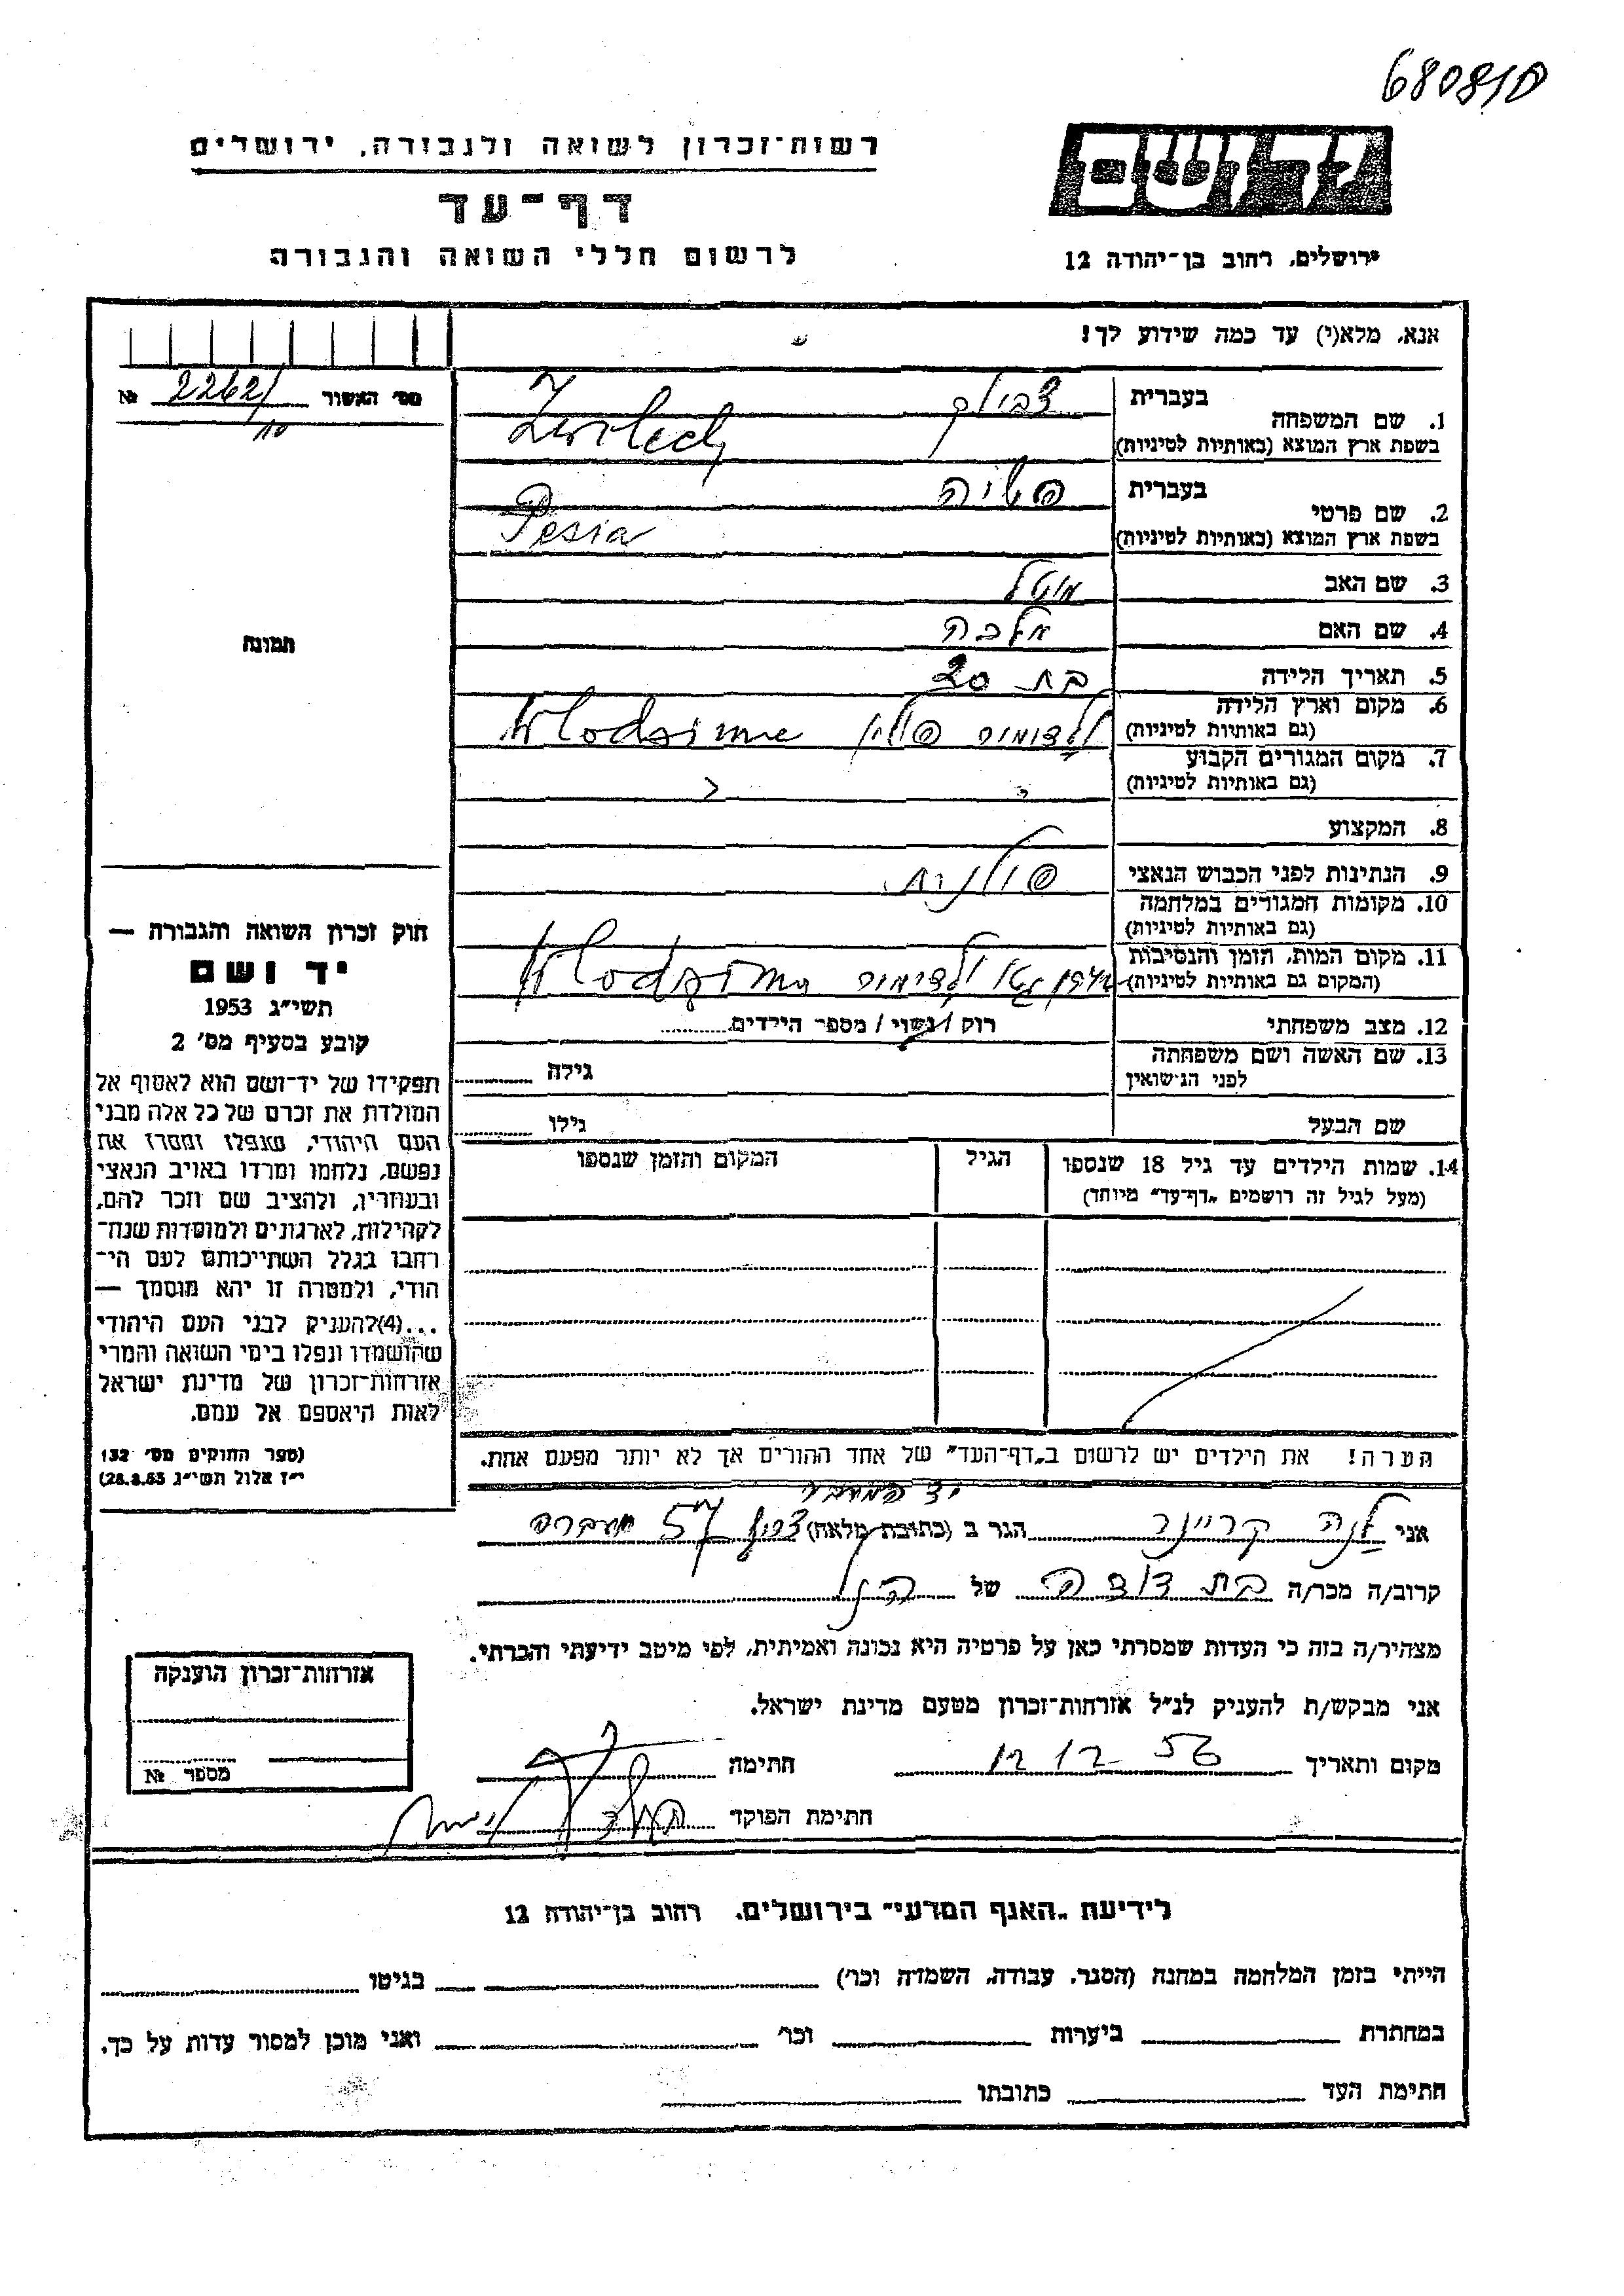 680810
רשות־זכרון לשואה ולגבורה, ירושלים
דף־עד
לרשום חללי השואה והגבורה
ידושם
ירושלים, רחוב בן־יהודה 12
אנא, מלא(י) עד כמה שידוע לך!
מס׳ האשור 2262/ №
10
1. שם המשפחה
בעברית
בשפת ארץ המוצא (באותיות לטיניות)
2. שם פרטי
בעברית פסיה
בשפת ארץ המוצא (באותיות לטיניות) Pesia
3. שם האב מוטל
4. שם האם
5. תאריך הלידה בת 20
6. מקום וארץ הלידה
(גם באותיות לטיניות) פולין
7. מקום המגורים הקבוע
(גם באותיות לטיניות)
8. המקצוע
9. הנתינות לפני הכבוש הנאצי פולנית
10. מקומות המגורים במלחמה
(גם באותיות לטיניות)
11. מקום המות, הזמן והנסיבות
(המקום גם באותיות לטיניות)
12. מצב משפחתי רווק / נשוי / מספר הילדים
13. שם האשה ושם משפחתה
לפני הנישואין גילה
שם הבעל גילו
14. שמות הילדים עד גיל 18 שנספו
(מעל לגיל זה רושמים „דף־עד״ מיוחד)
הגיל
המקום והזמן שנספו
הערה! את הילדים יש לרשום ב„דף־העד״ של אחד ההורים אך לא יותר מפעם אחת.
תמונה
חוק זכרון השואה והגבורה —
יד ושם
תשי״ג 1953
קובע בסעיף מס׳ 2
תפקידו של יד־ושם הוא לאסוף אל
המולדת את זכרם של כל אלה מבני
העם היהודי, שנפלו ומסרו את
נפשם, נלחמו ומרדו באויב הנאצי
ובעוזריו, ולהציב שם וזכר להם,
לקהילות, לארגונים ולמוסדות שנח־
רבו בגלל השתייכותם לעם הי־
הודי, ולמטרה זו יהא מוסמך —
...(4)להעניק לבני העם היהודי
שהושמדו ונפלו בימי השואה והמרי
אזרחות־זכרון של מדינת ישראל
לאות היאספם אל עמם.
(ספר החוקים מס׳ 132
י״ז אלול תשי״ג 28.8.53)
אני הגר ב (כתובת מלאה) 57 מעברה
קרוב/ה מכר/ה בת דודה של הנ״ל
מצהיר/ה בזה כי העדות שמסרתי כאן על פרטיה היא נכונה ואמיתית, לפי מיטב ידיעתי והכרתי.
אני מבקש/ת להעניק לנ״ל אזרחות־זכרון מטעם מדינת ישראל.
מקום ותאריך 12 12 56 חתימה
חתימת הפוקד
אזרחות־זכרון הוענקה
מספר №
לידיעת „האגף המדעי״ בירושלים. רחוב בן־יהודה 12
הייתי בזמן המלחמה במחנה (הסגר, עבודה, השמדה וכו׳) בגיטו
במחתרת ביערות וכו׳ ואני מוכן למסור עדות על כך.
חתימת העד כתובתו